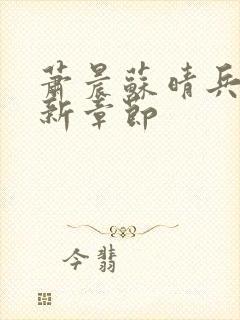 蕭晨蘇晴兵
新章節
今翡